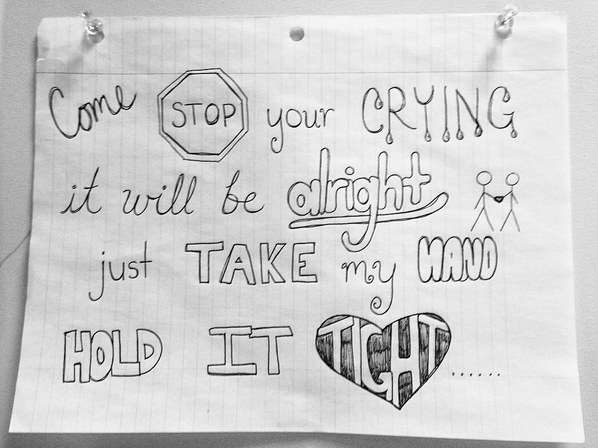 Come STOP your CRYING
it will be alright
just TAKE my HAND
HOLD IT TIGHT......